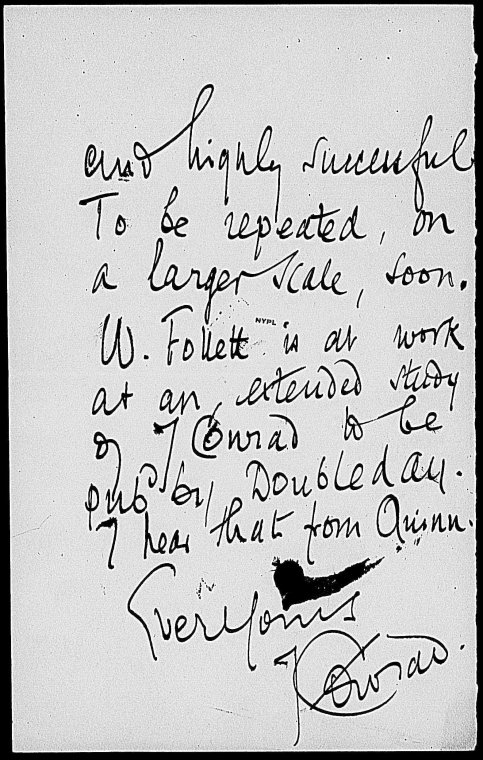 and highly successful
To be repeated, on
a larger scale, soon.
NYPL
W. Follett is at work
at an extended study
of J Conrad to be
pubd by Doubleday.
I hear that from Quinn.
Ever Yours
J Conrad.